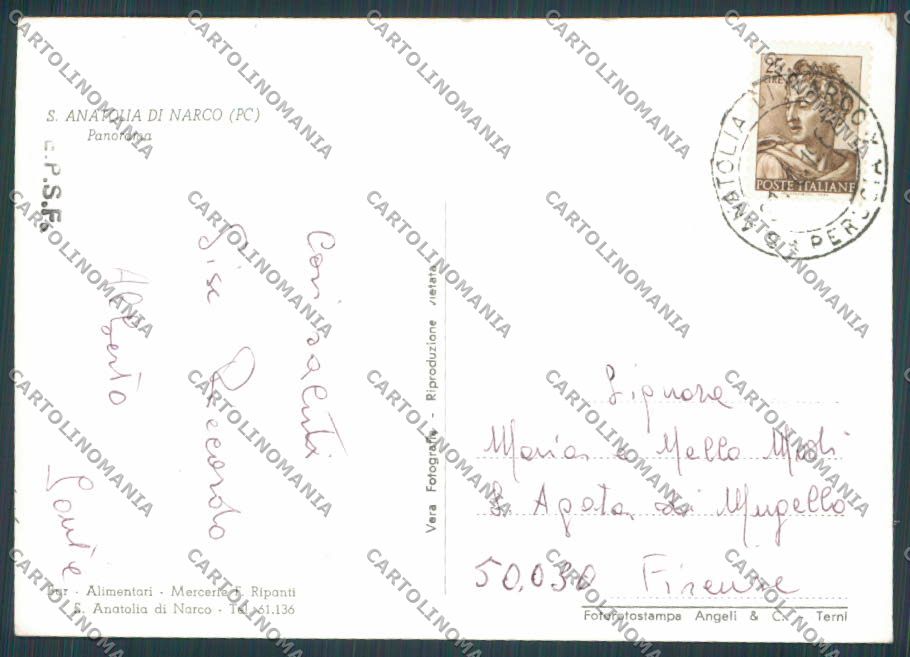 S. ANATOLIA DI NARCO (PC)
Panorama
E.P.S.F.
Cari saluti
Alberto
Vera Fotografia - Riproduzione vietata
POSTE ITALIANE
PERUGIA
Signore
Maria e Mella Medi
S. Agata di Mugello
50.030 Firenze
Bar - Alimentari - Mercerie F. Ripanti
S. Anatolia di Narco - Tel. 61.136
Fotorotostampa Angeli & C. - Terni
CARTOLINOMANIA